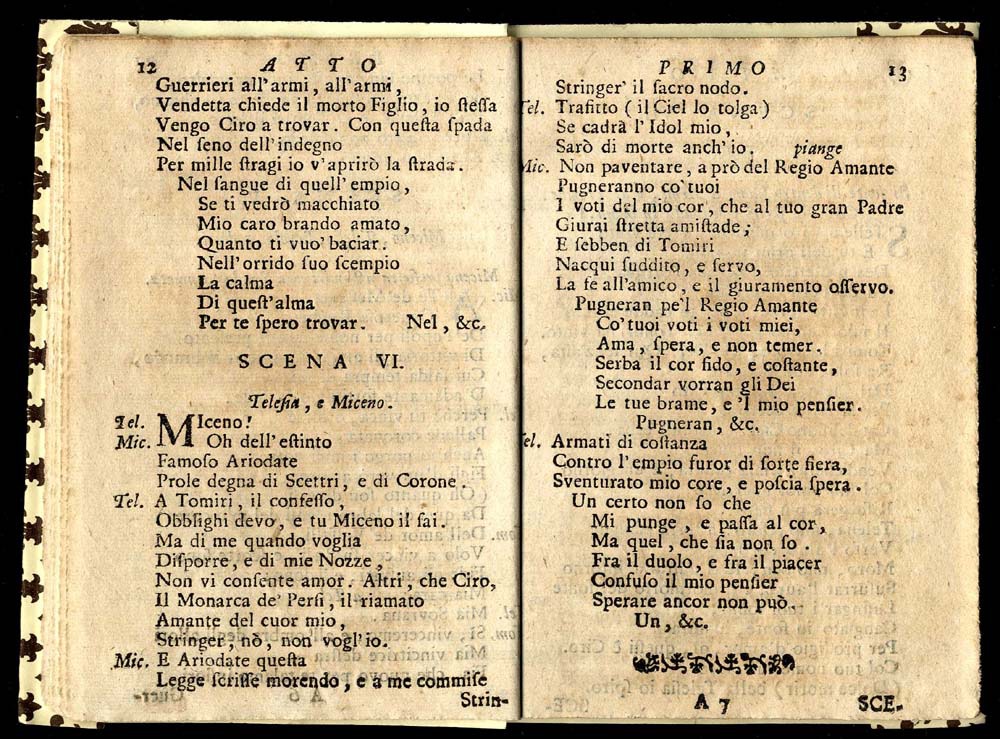 12 ATTO
Guerrieri all'armi, all'armi,
Vendetta chiede il morto Figlio, io ſteſſa
Vengo Ciro a trovar. Con queſta ſpada
Nel ſeno dell'indegno
Per mille ſtragi io v'aprirò la ſtrada.
Nel ſangue di quell'empio,
Se ti vedrò macchiato
Mio caro brando amato,
Quanto ti vuo' baciar.
Nell'orrido ſuo ſcempio
La calma
Di queſt'alma
Per te ſpero trovar. Nel, &c.
SCENA VI.
Teleſia, e Miceno.
Tel. MIceno!
Mic. Oh dell'eſtinto
Famoſo Ariodate
Prole degna di Scettri, e di Corone.
Tel. A Tomiri, il confeſſo,
Obblighi devo, e tu Miceno il ſai.
Ma di me quando voglia
Diſporre, e di mie Nozze,
Non vi conſente amor. Altri, che Ciro,
Il Monarca de' Perſi, il riamato
Amante del cuor mio,
Stringer, nò, non vogl'io.
Mic. E Ariodate queſta
Legge ſcriſſe morendo, e a me commiſe
Strin-
PRIMO 13
Stringer' il ſacro nodo.
Tel. Trafitto (il Ciel lo tolga)
Se cadrà l'Idol mio,
Sarò di morte anch'io. piange
Mic. Non paventare, a prò del Regio Amante
Pugneranno co' tuoi
I voti del mio cor, che al tuo gran Padre
Giurai ſtretta amiſtade;
E ſebben di Tomiri
Nacqui ſuddito, e ſervo,
La fè all'amico, e il giuramento oſſervo.
Pugneran pe'l Regio Amante
Co' tuoi voti i voti miei,
Ama, ſpera, e non temer.
Serba il cor fido, e coſtante,
Secondar vorran gli Dei
Le tue brame, e 'l mio penſier.
Pugneran, &c.
Tel. Armati di coſtanza
Contro l'empio furor di ſorte fiera,
Sventurato mio core, e poſcia ſpera.
Un certo non ſo che
Mi punge, e paſſa al cor,
Ma quel, che ſia non ſo.
Fra il duolo, e fra il piacer
Confuſo il mio penſier
Sperare ancor non può.
Un, &c.
A 7 SCE-